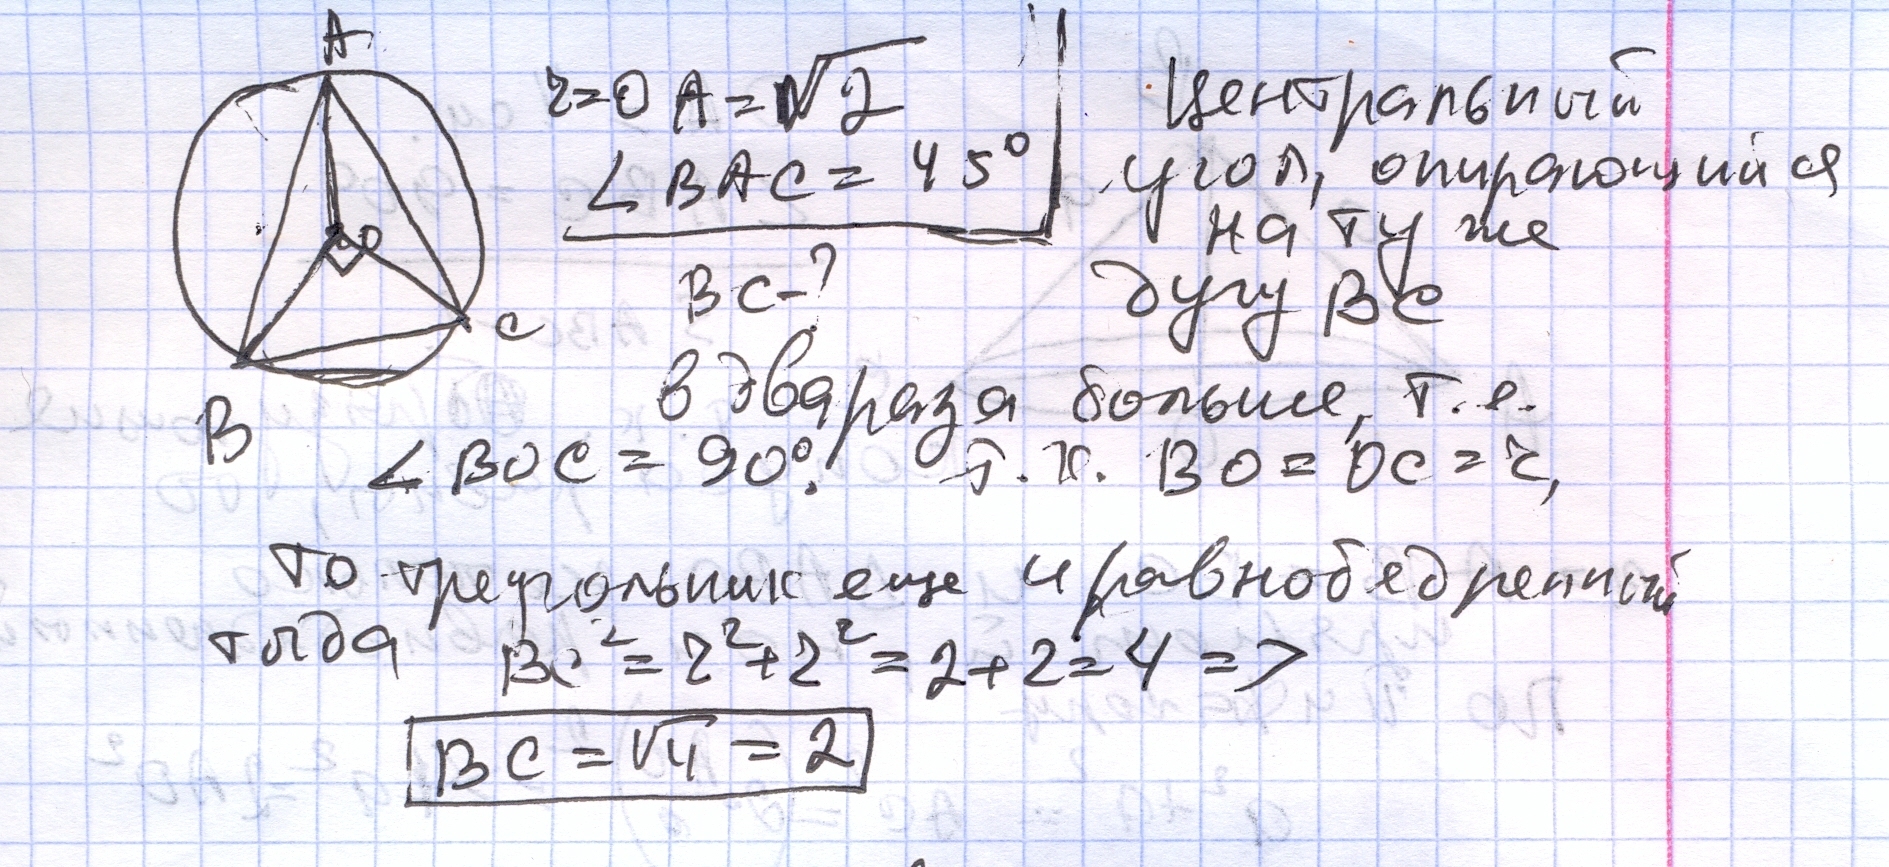 A
r=OA=√2
∠BAC=45°
BC-?
O
C
B
Центральный
угол, опирающийся
на ту же
дугу BC
в два раза больше, т.е.
∠BOC=90°. Т.к. BO=OC=r,
то треугольник еще и равнобедренный
тогда BC²=r²+r²=2+2=4=>
BC=√4=2